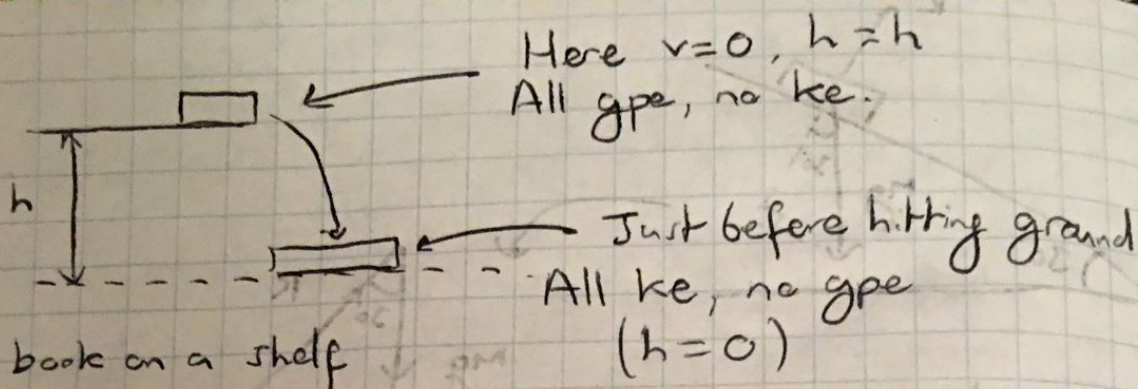 Here v=0, h=h
All gpe, no ke.
h
Just before hitting ground
All ke, no gpe
(h=0)
book on a shelf